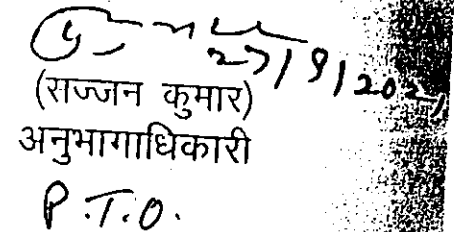 27/9/2021
(सज्जन कुमार)
अनुभागाधिकारी
P.T.O.